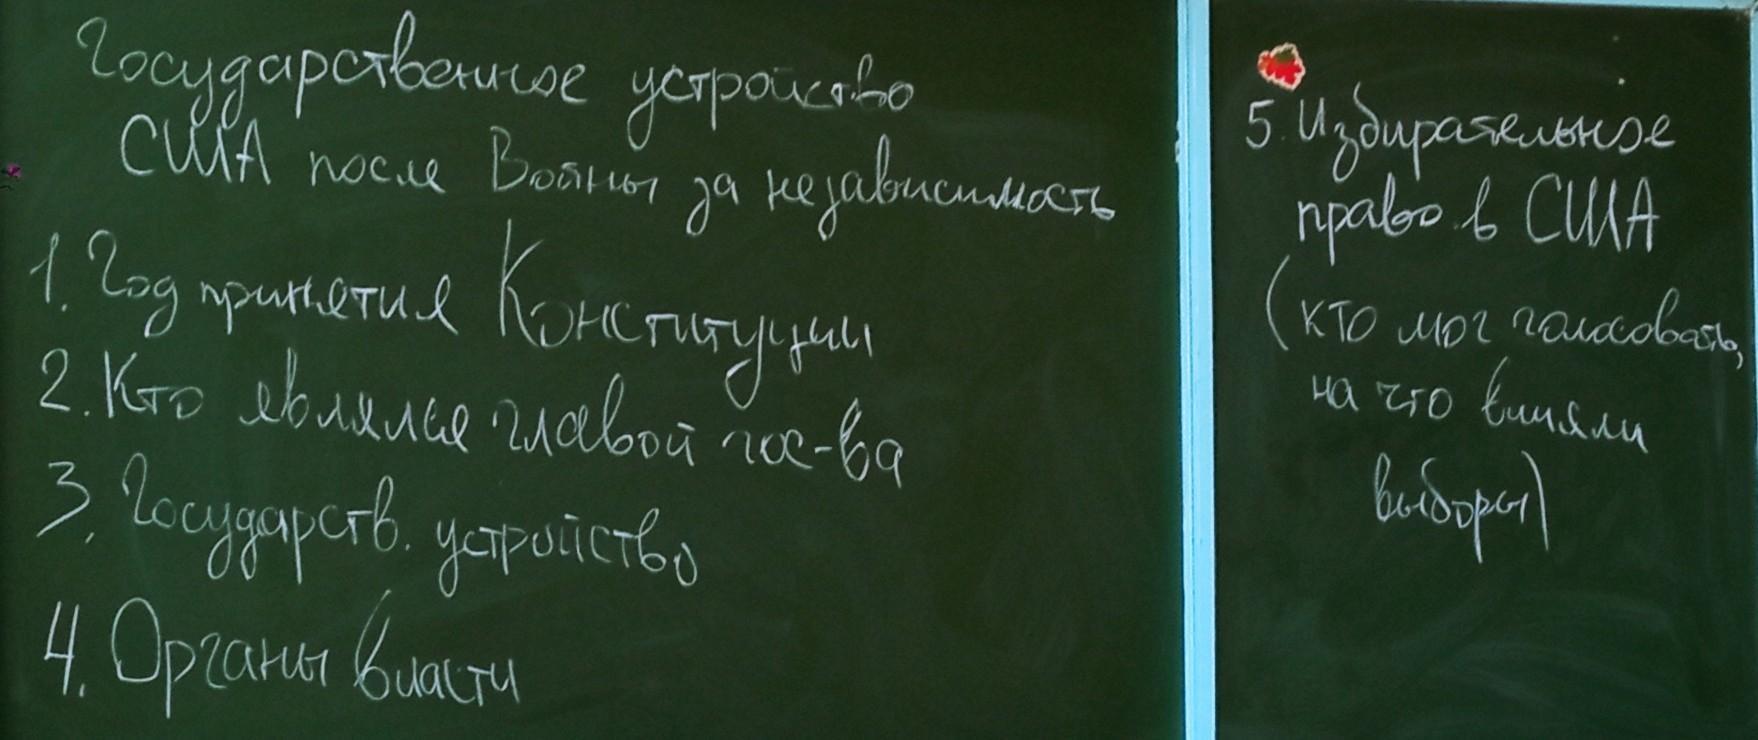 Государственное устройство
США после Войны за независимость
1. Год принятия Конституции
2. Кто являлся главой гос-ва
3. Государств. устройство
4. Органы власти
5. Избирательное
право в США
(кто мог голосовать,
на что влияли
выборы)